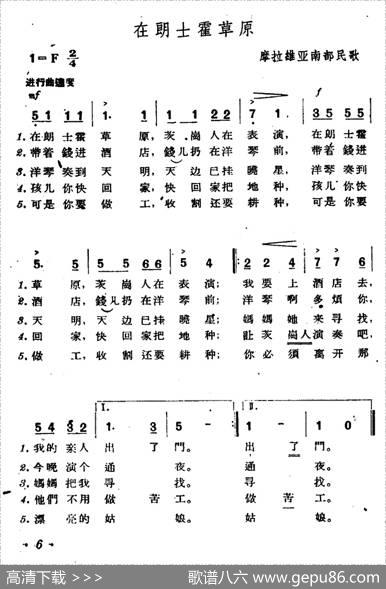 在朗士霍草原
1=F 2/4
摩拉雄亚南部民歌
进行曲速度
mf
5 1 1 1 1. 1 1 1 2 2 7 1. 3 5 5 5
1.在朗士霍草原，茨崗人在表演；在朗士霍
2.带着錢进酒店，錢儿扔在洋琴前；带着錢进
3.洋琴奏到天明，天边已挂曉星；洋琴奏到
4.孩儿你快回家，快回家把地种，孩儿你快
5.可是你要做工，收割还要耕种，可是你要
5. 5 5 5 5 5 5 5 4 2 2 4 7 1 2 3
1.草原，茨崗人在表演；我要上酒店去，
2.酒店，錢儿扔在洋琴前；洋琴啊多煩你，
3.天明，天边已挂曉星；媽媽她来寻找，
4.回家，快回家把地种；让茨崗人演奏吧，
5.做工，收割还要耕种；你必須离开那
5 4 4 3 2 1. 3 5 - 1 - 1 0
I. II.
1.我的亲人出了門。出了門。
2.今晚演个通夜。通夜。
3.媽媽把我寻找。寻找。
4.他們不用做苦工。做苦工。
5.漂亮的姑娘。姑娘。
6
高清下载 >>>
歌谱八六 www.gepu86.com